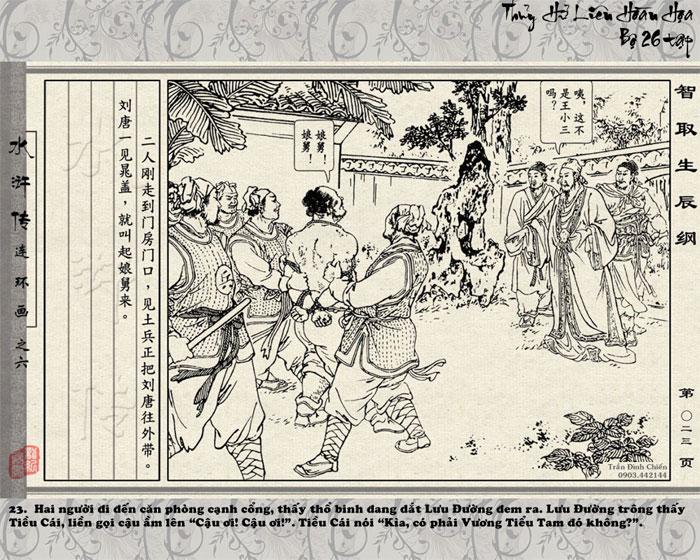 Thủy Hử Liên Hoàn Họa
Bộ 26 tập
智取生辰纲
第〇二三页
咦，这不
是王小三
吗？
娘舅！
娘舅！
二人刚走到门房门口，见土兵正把刘唐往外带。
刘唐一见晁盖，就叫起娘舅来。
水浒传连环画之六
水浒传
Trần Đình Chiến
0903.442144
23. Hai người đi đến căn phòng cạnh cổng, thấy thổ binh đang dắt Lưu Đường đem ra. Lưu Đường trông thấy
Tiều Cái, liền gọi cậu ầm lên “Cậu ơi! Cậu ơi!”. Tiều Cái nói “Kìa, có phải Vương Tiểu Tam đó không?”.